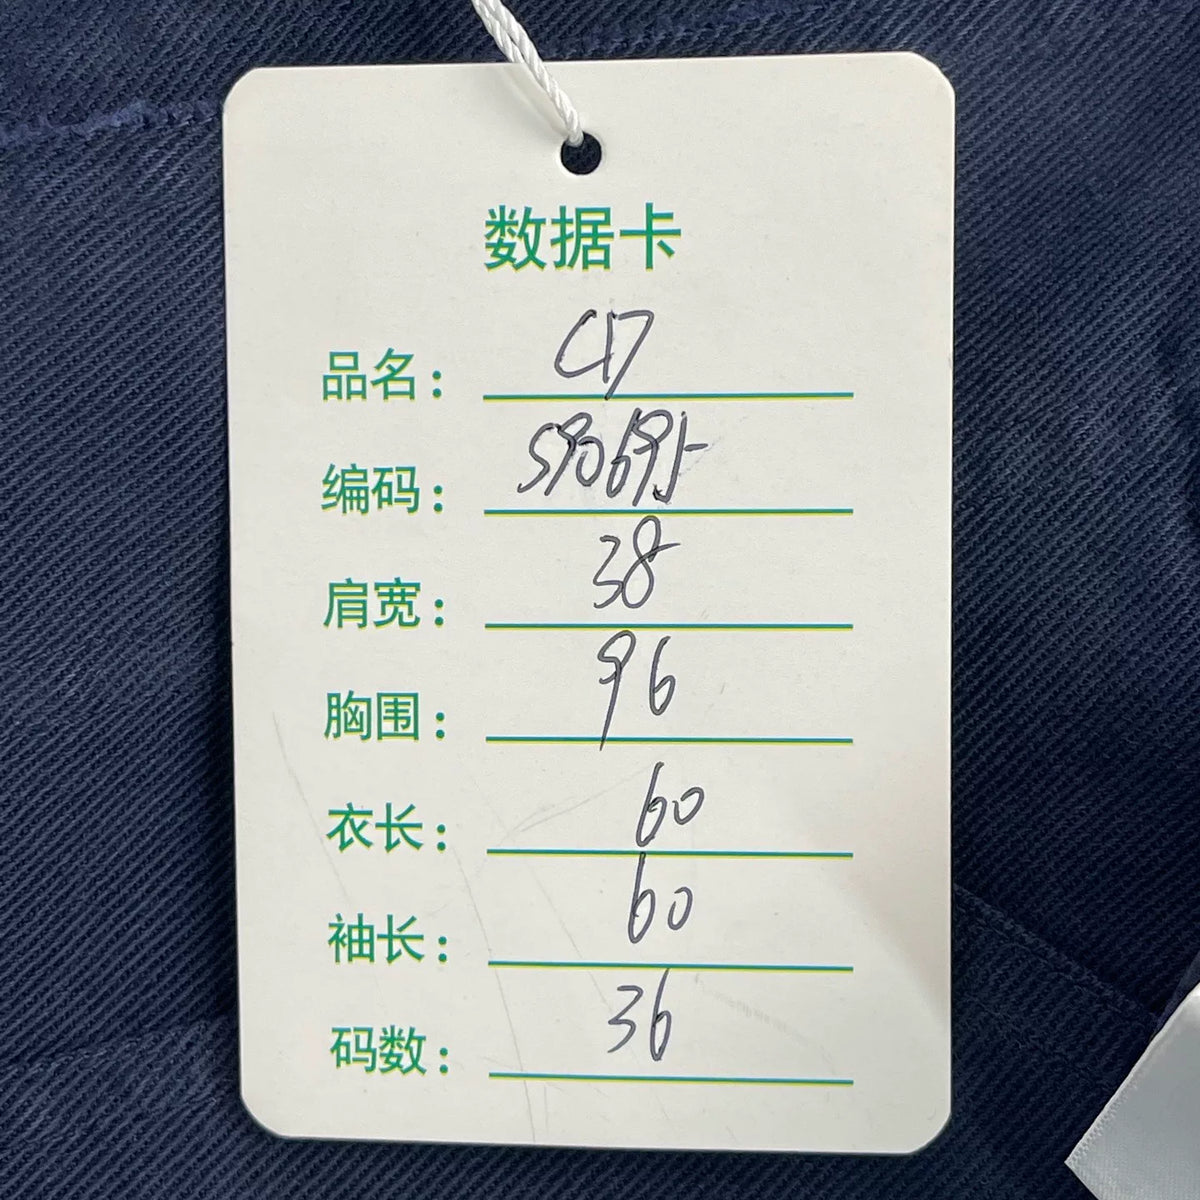 数据卡
品名： C17
编码： 590695
肩宽： 38
胸围： 96
衣长： 60
袖长： 60
码数： 36